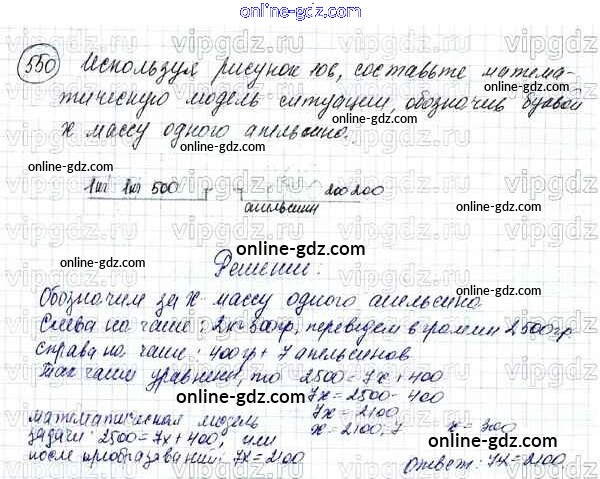 online-gdz.com
550 Используя рисунок 106, составьте матема-
тическую модель ситуации, обозначив буквой
х массу одного апельсина.
online-gdz.com
online-gdz.com
1кг 1кг 500 200 200
апельсин
online-gdz.com
Решение:
Обозначим за х массу одного апельсина
Слева на чаше: 2кг 500гр, переведем в граммы 2500гр.
справа на чаше: 400гр + 7 апельсинов
Так чаши уравнены, то 2500=7х+400
7х=2500-400
математическая модель 7х=2100
задачи: 2500=7х+400, или х=2100:7 х=300
после преобразований: 7х=2100 ответ: 7х=2100
online-gdz.com
online-gdz.com
online-gdz.com